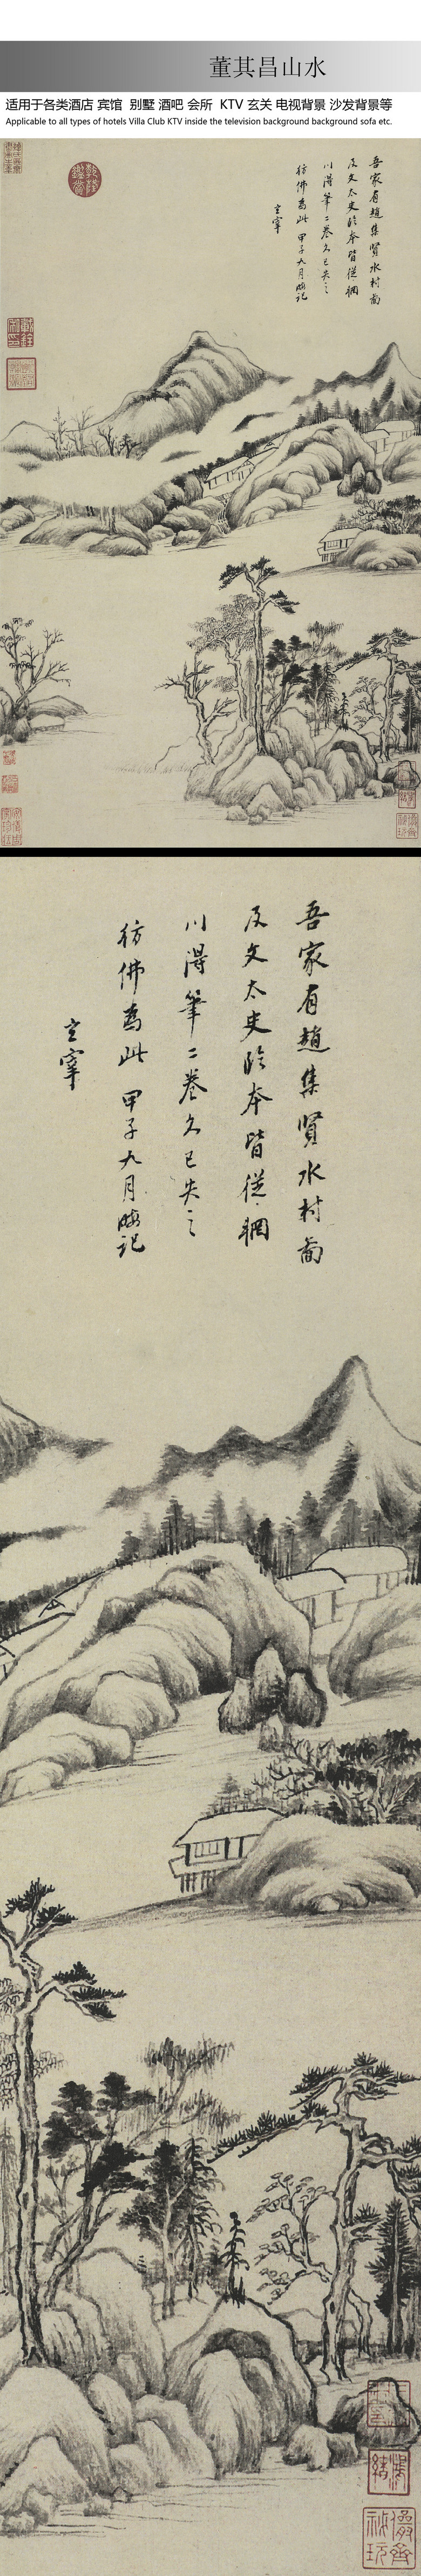 董其昌山水
适用于各类酒店 宾馆 别墅 酒吧 会所 KTV 玄关 电视背景 沙发背景等
Applicable to all types of hotels Villa Club KTV inside the television background background sofa etc.
吾家有趙集賢水村圖
及文太史臨本皆從輞
川得筆二卷久已失之
彷彿為此甲子九月晦記
玄宰
吾家有趙集賢水村圖
及文太史臨本皆從輞
川得筆二卷久已失之
彷彿為此甲子九月晦記
玄宰